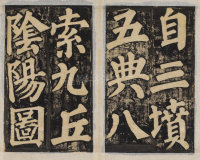 自三墳
五典八
索九丘
陰陽圖